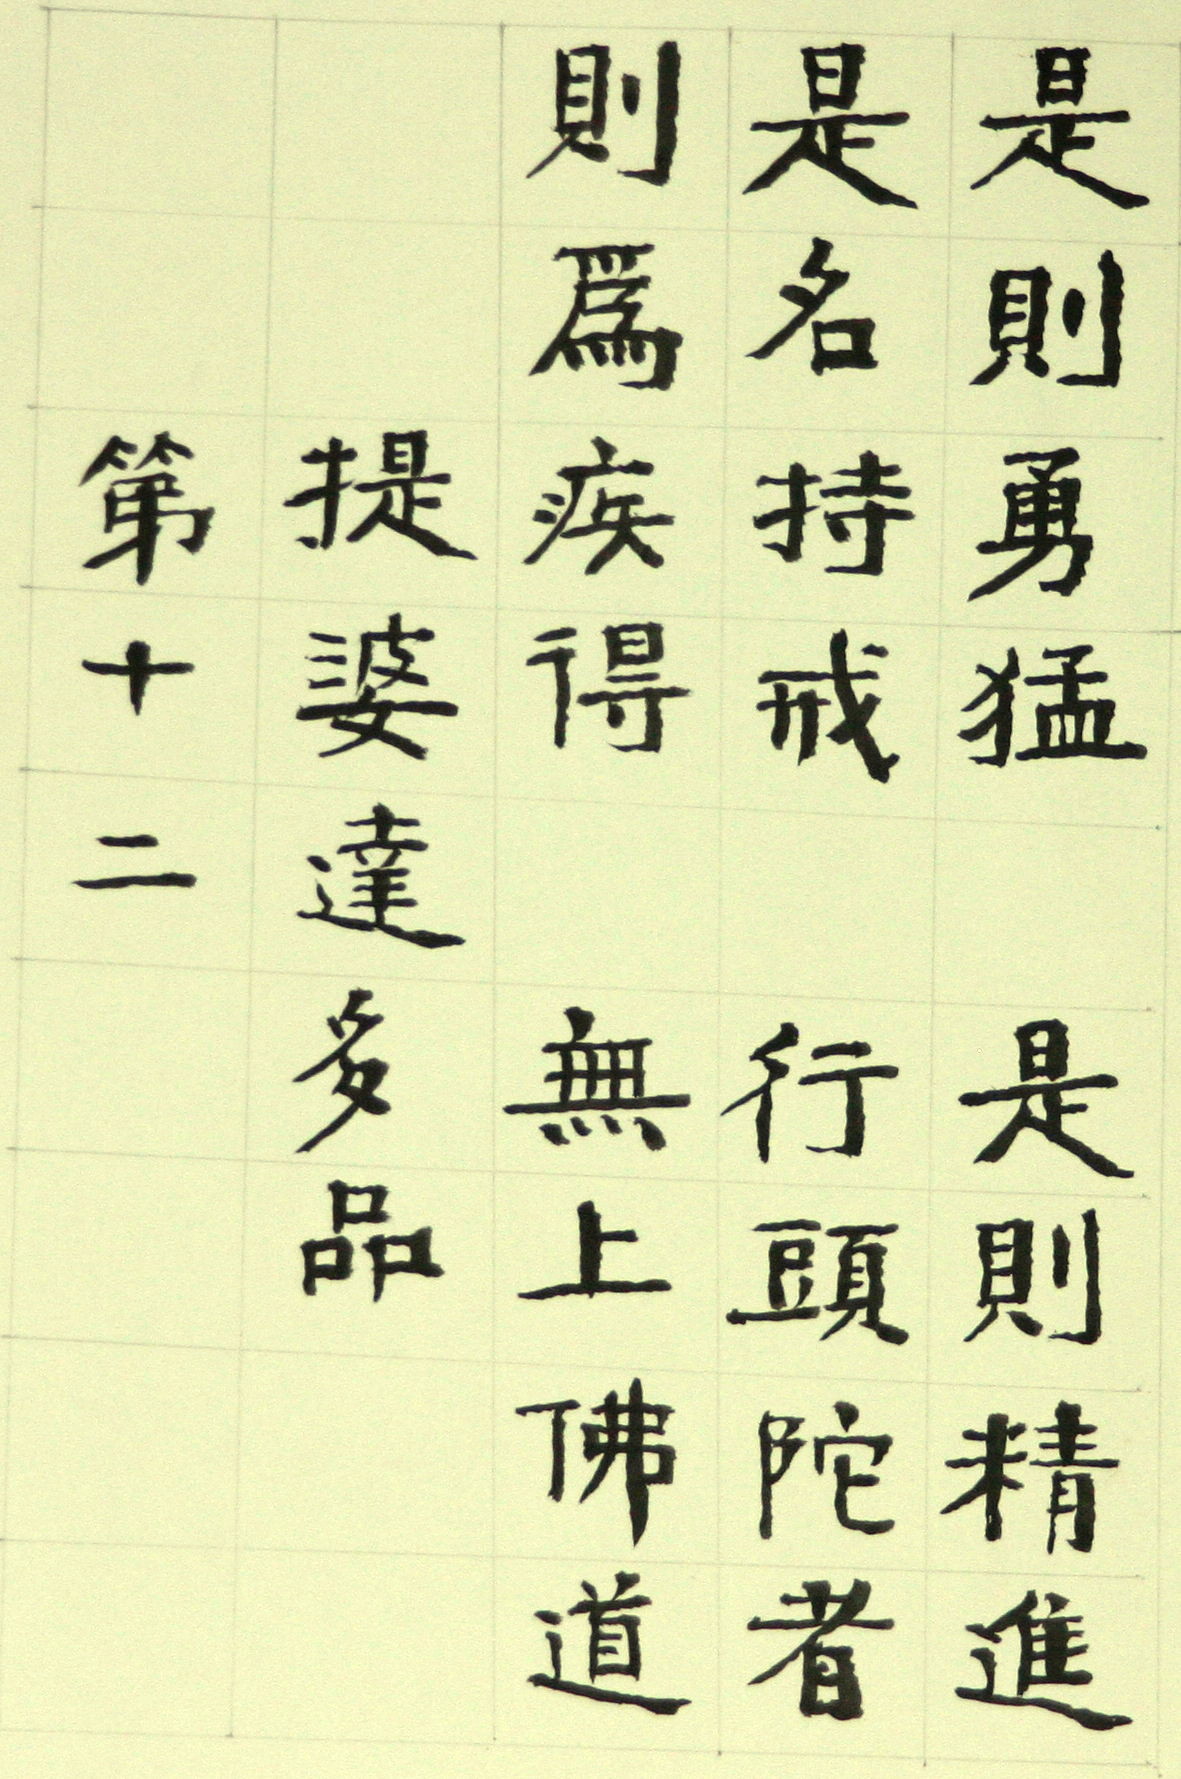 是則勇猛　是則精進
是名持戒　行頭陀者
則爲疾得　無上佛道
提婆達多品
第十二